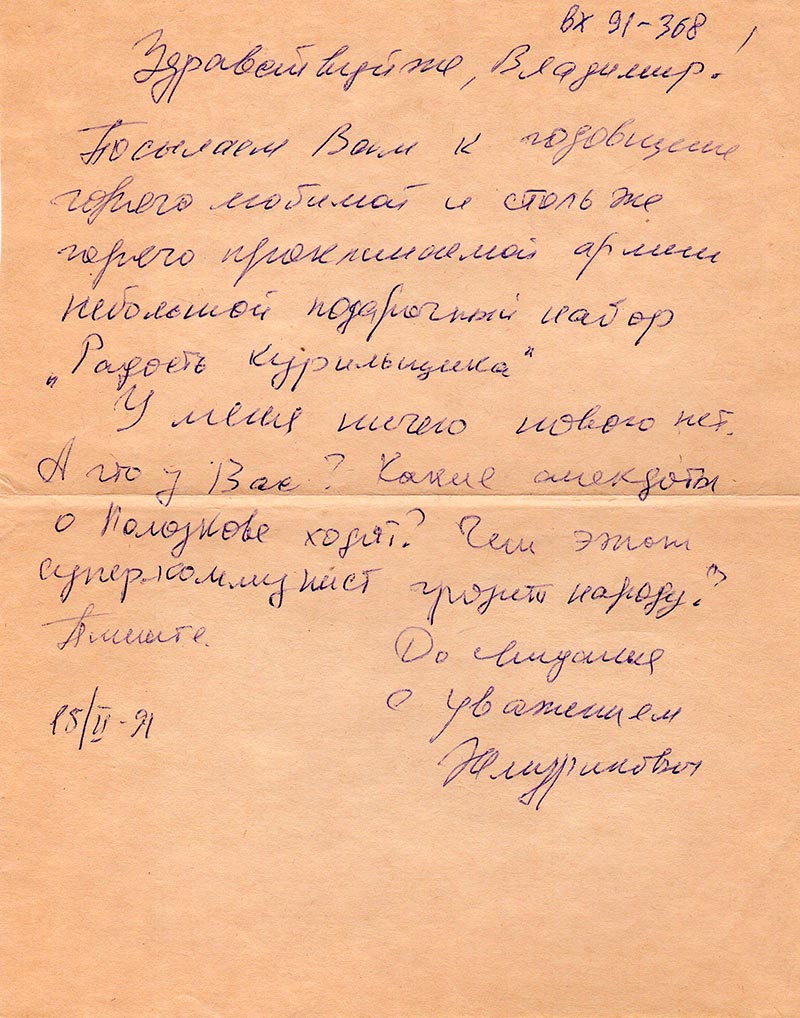 вх 91-368
Здравствуйте, Владимир!
Посылаем Вам к годовщине
горячо любимой и столь же
горячо проклинаемой армии
небольшой подарочный набор
„Радость курильщика“
У меня ничего нового нет.
А что у Вас? Какие анекдоты
о Полозкове ходят? Чем этот
суперкоммунист грозит народу?
Пишите.
До свидания
С уважением
15/II-91